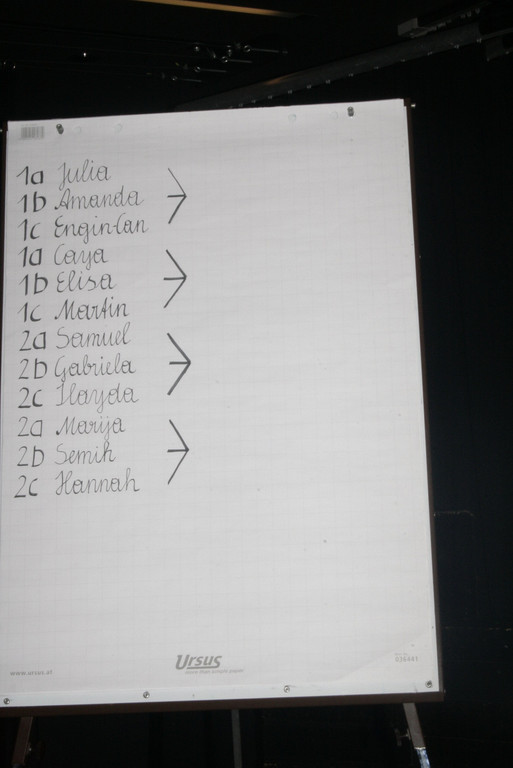 1a Julia
1b Amanda
1c Engin-Can
1a Caya
1b Elisa
1c Martin
2a Samuel
2b Gabriela
2c Ilayda
2a Marija
2b Semih
2c Hannah
Ursus
www.ursus.at